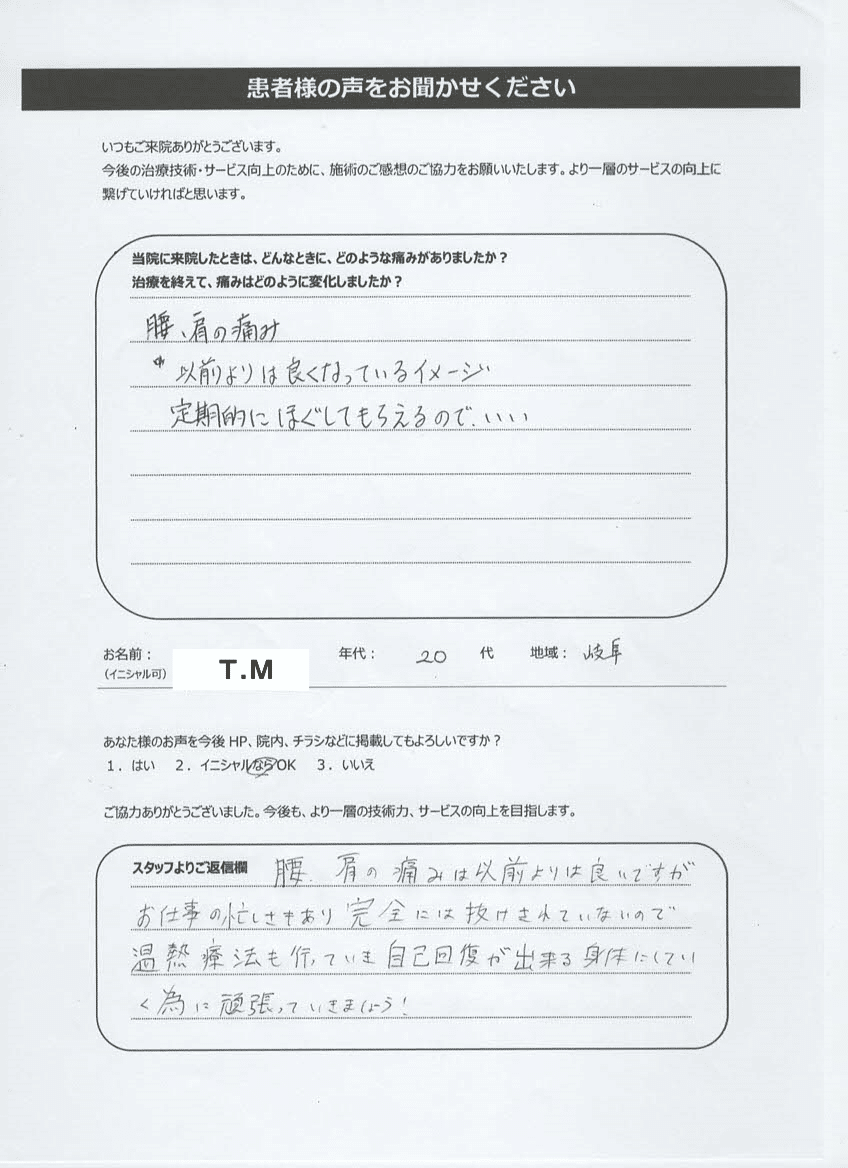 患者様の声をお聞かせください
いつもご来院ありがとうございます。
今後の治療技術・サービス向上のために、施術のご感想のご協力をお願いいたします。より一層のサービスの向上に
繋げていければと思います。
当院に来院したときは、どんなときに、どのような痛みがありましたか？
治療を終えて、痛みはどのように変化しましたか？
腰、肩の痛み
以前よりは良くなっているイメージ
定期的にほぐしてもらえるので、いい
お名前： T.M 年代： 20 代 地域： 岐阜
（イニシャル可）
あなた様のお声を今後 HP、院内、チラシなどに掲載してもよろしいですか？
1．はい 2．イニシャルならOK 3．いいえ
ご協力ありがとうございました。今後も、より一層の技術力、サービスの向上を目指します。
スタッフよりご返信欄 腰、肩の痛みは以前よりは良いですが
お仕事の忙しさもあり完全には抜けきれていないので
温熱療法も行っていき自己回復が出来る身体にしてい
く為に頑張っていきましょう！